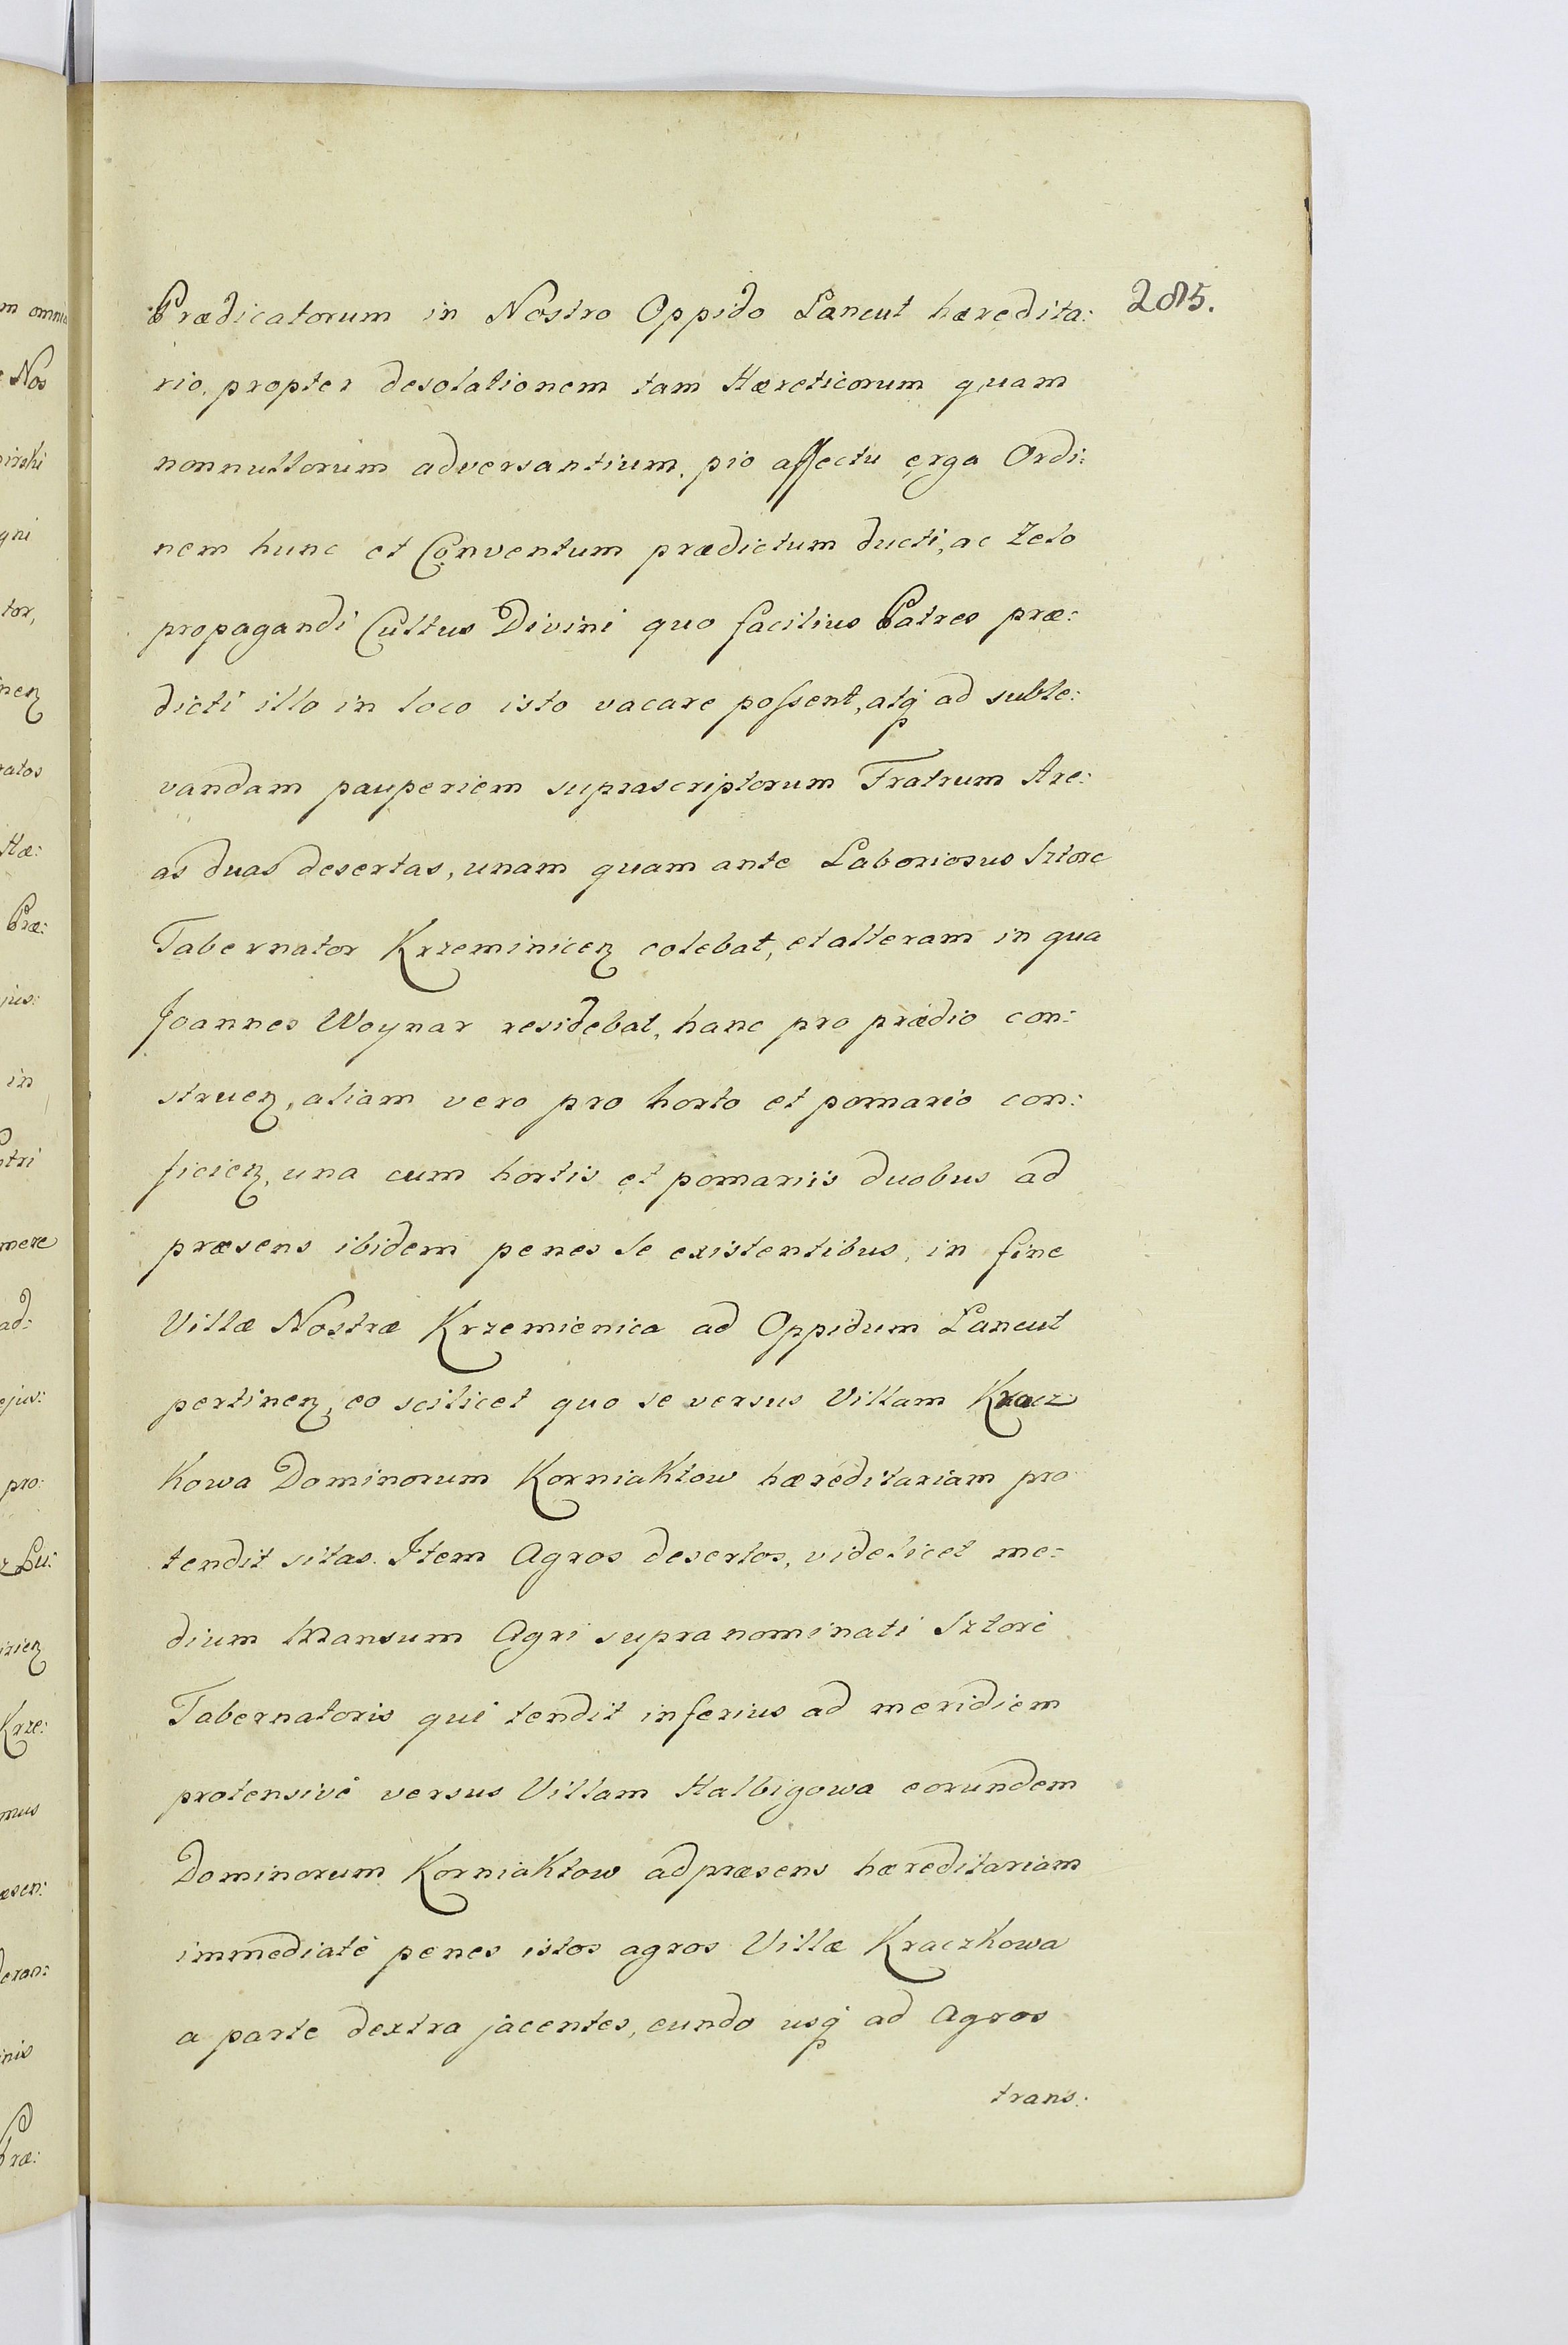 285.
Prædicatorum in Nostro Oppido Lancut hæredita:
rio, propter desolationem tam Hæreticorum quam
nonnullorum adversantium, pio affectu erga Ordi:
nem hunc et Conventum prædictum ducti, ac Zelo
propagandi Cultus Divini quo facilius Patres præ:
dicti illo in loco isto vacare possent, atq ad suble:
vandam pauperiem suprascriptorum Fratrum Are:
as duas desertas, unam quam ante Laboriosus Sztore
Tabernator Krzeminicen colebat, et alteram in qua
Joannes Woynar residebat, hanc pro prædio con:
struen, aliam vero pro horto et pomario con:
ficien, una cum hortis et pomariis duobus ad
præsens ibidem penes se existentibus, in fine
Villæ Nostræ Krzemienica ad Oppidum Lancut
pertinen, eo scilicet quo se versus Villam Kracz
kowa Dominorum Korniaktow hæreditariam pro
tendit sitas. Item Agros desertos, videlicet me:
dium Mansum Agri supranominati Sztore
Tabernatoris qui tendit inferius ad meridiem
protensivé versus Villam Halbigowa eorundem
Dominorum Korniaktow ad præsens hæreditariam
immediaté penes istos agros Villæ Kraczkowa
a parte dextra jacentes, eundo usq ad Agros
trans: